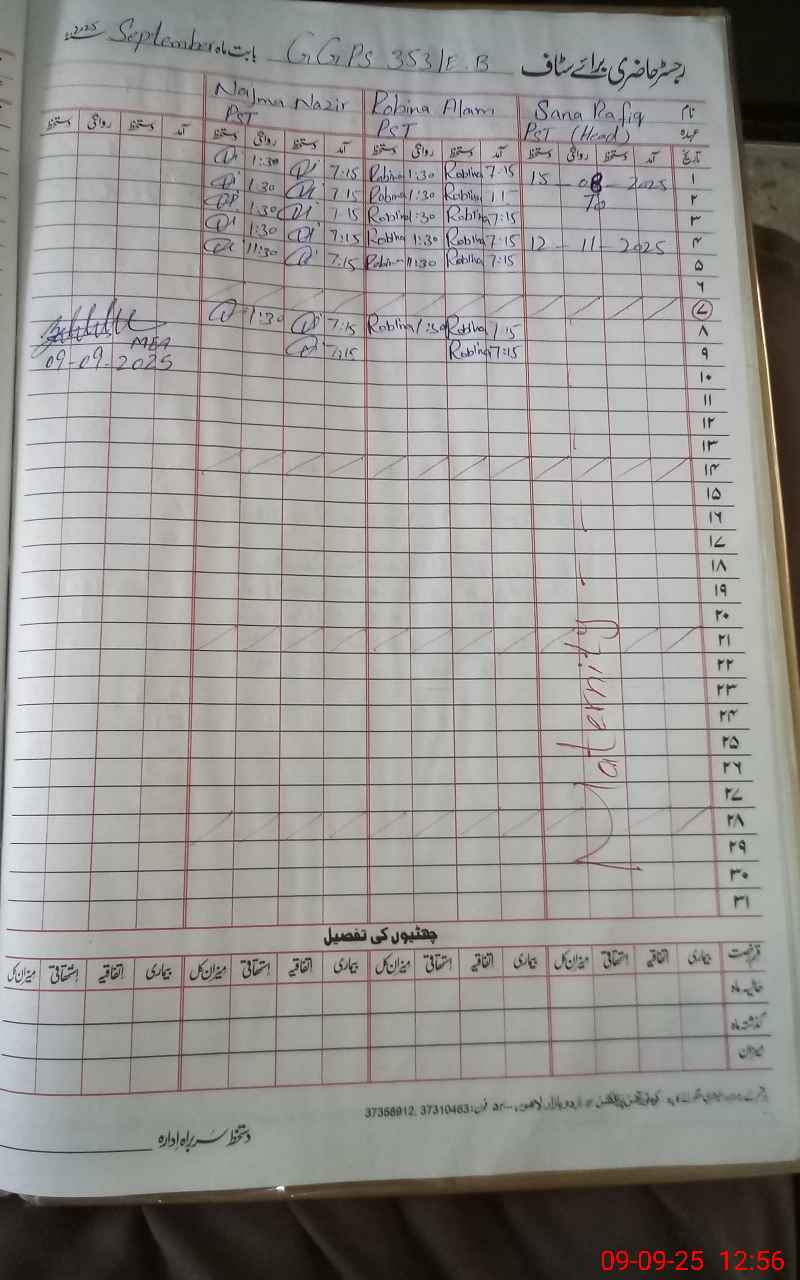 رجسٹر حاضری برائے سٹاف GGPS 353/E.B بابت ماہ September 2025
نام Sana Rafiq Robina Alam Najma Nazir
عہدہ PST (Head) PST PST
تاریخ آمد دستخط روانگی دستخط آمد دستخط روانگی دستخط آمد دستخط روانگی دستخط آمد دستخط روانگی دستخط
۱ 15-08-2025 7:15 Robina 1:30 Robina 7:15 1:30
۲ To Robina 1:30 Robina 7:15 1:30
۳ 7:15 Robina 1:30 Robina 7:15 1:30
۴ 12-11-2025 7:15 Robina 1:30 Robina 7:15 1:30
۵ 7:15 Robina 11:30 Robina 7:15 11:30
۶
۷
۸ 7:15 Robina 1:30 Robina 7:15 1:30
۹ 7:15 Robina 7:15
MEA
09-09-2025
۱۰
۱۱
۱۲
۱۳
۱۴
۱۵
۱۶
۱۷
۱۸
۱۹
۲۰
۲۱
۲۲
۲۳
۲۴
۲۵
۲۶
۲۷
۲۸
۲۹
۳۰
۳۱
Maternity
چھٹیوں کی تفصیل
قسم رخصت بیماری اتفاقیہ استحقاقی میزان کل بیماری اتفاقیہ استحقاقی میزان کل بیماری اتفاقیہ استحقاقی میزان کل بیماری اتفاقیہ استحقاقی میزان کل
حالیہ ماہ
گذشتہ ماہ
میزان
اردو بازار لاہور فون: 37310463, 37358912
دستخط سربراہ ادارہ
09-09-25 12:56